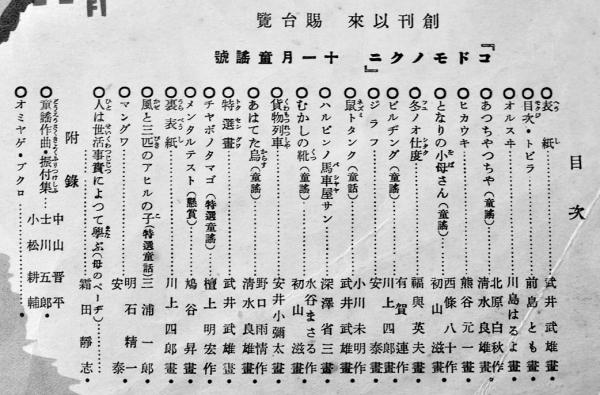 創刊以來 賜台覽
『コドモノクニ』 十一月童謠號
目次
表紙……武井武雄畫
目次・トビラ……前島とも畫
オルスヰ……川島はるよ畫
あつちやつちや(童謠)……北原白秋作 清水良雄畫
ヒカウキ……熊谷元一畫
となりの小母さん(童謠)……西條八十作 初山滋畫
冬ノオ仕度……福與英夫畫
ビルヂング(童謠)……有賀連作 川上四郎畫
ジラフ……安泰畫
鼠トタンク(童話)……小川未明作 武井武雄畫
ハルピンノ馬車屋サン……深澤省三畫
むかしの靴(童謠)……水谷まさる作 初山滋畫
貨物列車……安井小彌太畫
あはてた烏(童謠)……野口雨情作 清水良雄畫
特選畫……武井武雄
チヤボノタマゴ(特選童謠)……檀上明宏作
メンタルテスト(懸賞)……鳩谷昇畫
裏表紙……川上四郎畫
風と三匹のアヒルの子(特選童話)……三浦一郎
マングワ……明石精一 安泰
人は世活事實によつて學ぶ(母のページ)……霜田靜志
附錄
童謠作曲・振付集……中山晋平 士川五郎 小松耕輔
オミヤゲ・ブクロ